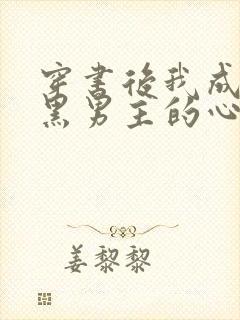 穿书后我成
黑男主的心
姜黎黎